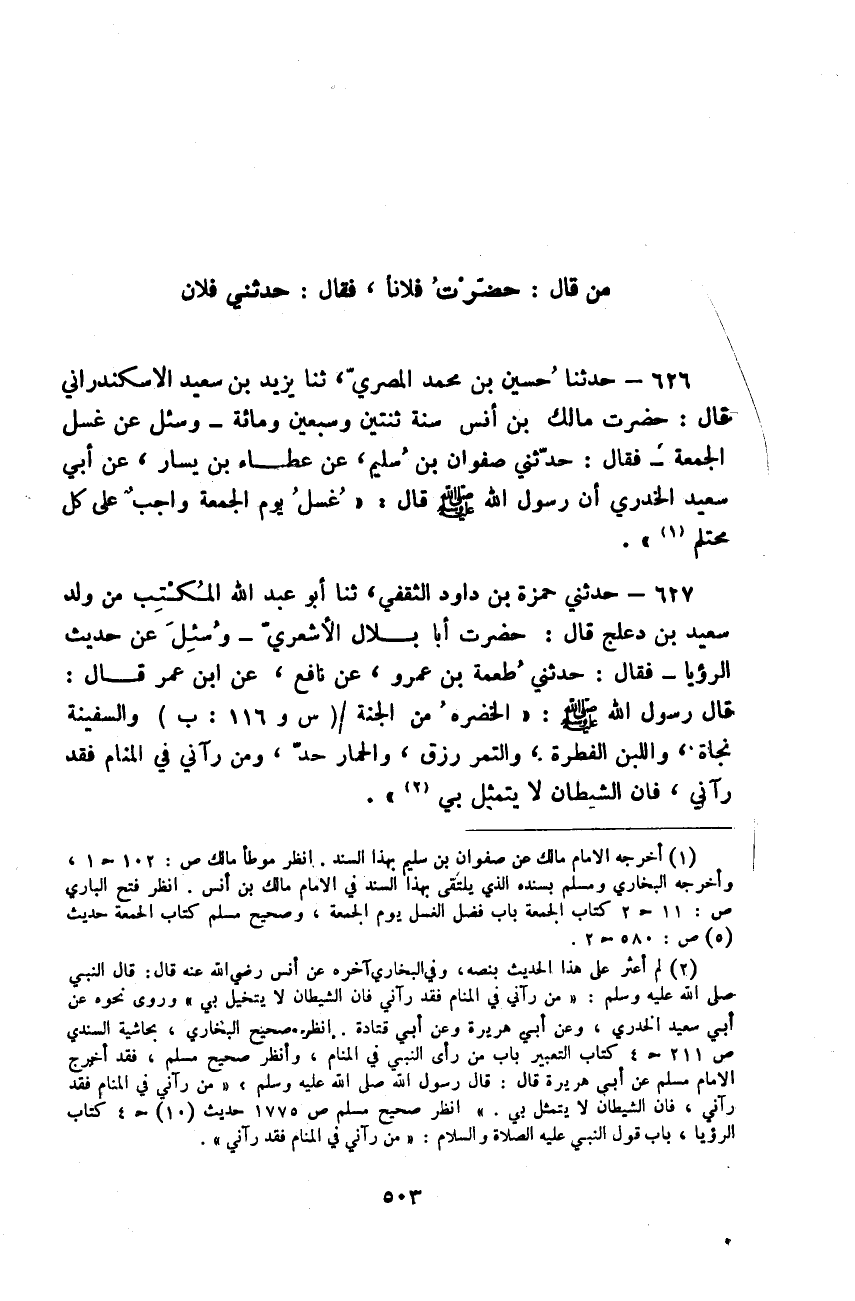 من قال : حضَرْتُ فلاناً ، فقال : حدثني فلان
٦٢٦ – حدثنا حُسين بن محمد المصريّ، ثنا يزيد بن سعيد الاسكندراني
قال : حضرت مالك بن أنس سنة ثنتين وسبعين ومائة – وسئل عن غسل
الجمعة – فقال : حدّثني صفوان بن سُليم، عن عطاء بن يسار ، عن أبي
سعيد الخدري أن رسول الله ﷺ قال : « غُسلُ يوم الجمعة واجبٌ على كل
محتلم (١) » .
٦٢٧ – حدثني حمزة بن داود الثقفي، ثنا أبو عبد الله المُكْتِب من ولد
سعيد بن دعلج قال : حضرت أبا بلال الأشعريّ – وسُئِلَ عن حديث
الرؤيا – فقال : حدثني طُعمة بن عمرو ، عن نافع ، عن ابن عمر قال :
قال رسول الله ﷺ : « الخضرهُ من الجنة /( س و ١١٦ : ب ) والسفينة
نجاة ، واللبن الفطرة ، والتمر رزق ، والحمار حدّ ، ومن رآني في المنام فقد
رآني ، فان الشيطان لا يتمثل بي (٢) » .
(١) أخرجه الامام مالك عن صفوان بن سليم بهذا السند . انظر موطأ مالك ص : ١٠٢ ح ١ ،
وأخرجه البخاري ومسلم بسنده الذي يلتقى بهذا السند في الامام مالك بن أنس . انظر فتح الباري
ص : ١١ ح ٢ كتاب الجمعة باب فضل الغسل يوم الجمعة ، وصحيح مسلم كتاب الجمعة حديث
(٥) ص : ٥٨٠ ح ٢ .
(٢) لم أعثر على هذا الحديث بنصه، وفي البخاري آخره عن أنس رضي الله عنه قال: قال النبي
صلى الله عليه وسلم : « من رآني في المنام فقد رآني فان الشيطان لا يتخيل بي » وروى نحوه عن
أبي سعيد الخدري ، وعن أبي هريرة وعن أبي قتادة . انظر صحيح البخاري ، بحاشية السندي
ص ٢١١ ح ٤ كتاب التعبير باب من رأى النبي في المنام ، وأنظر صحيح مسلم ، فقد أخرج
الامام مسلم عن أبي هريرة قال : قال رسول الله صلى الله عليه وسلم ، « من رآني في المنام فقد
رآني ، فان الشيطان لا يتمثل بي . » انظر صحيح مسلم ص ١٧٧٥ حديث (١٠) ح ٤ كتاب
الرؤيا ، باب قول النبي عليه الصلاة والسلام : « من رآني في المنام فقد رآني » .
٥٠٣